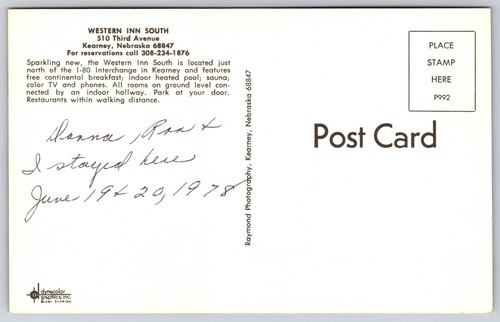 WESTERN INN SOUTH
510 Third Avenue
Kearney, Nebraska 68847
For reservations call 308-234-1876
Sparkling new, the Western Inn South is located just
north of the I-80 Interchange in Kearney and features
free continental breakfast; indoor heated pool; sauna;
color TV and phones. All rooms on ground level con-
nected by an indoor hallway. Park at your door.
Restaurants within walking distance.
Donna, Ron +
I stayed here
June 19 & 20, 1978
dynacolor
graphics inc.
MIAMI, FLORIDA
Raymond Photography, Kearney, Nebraska 68847
PLACE
STAMP
HERE
P992
Post Card